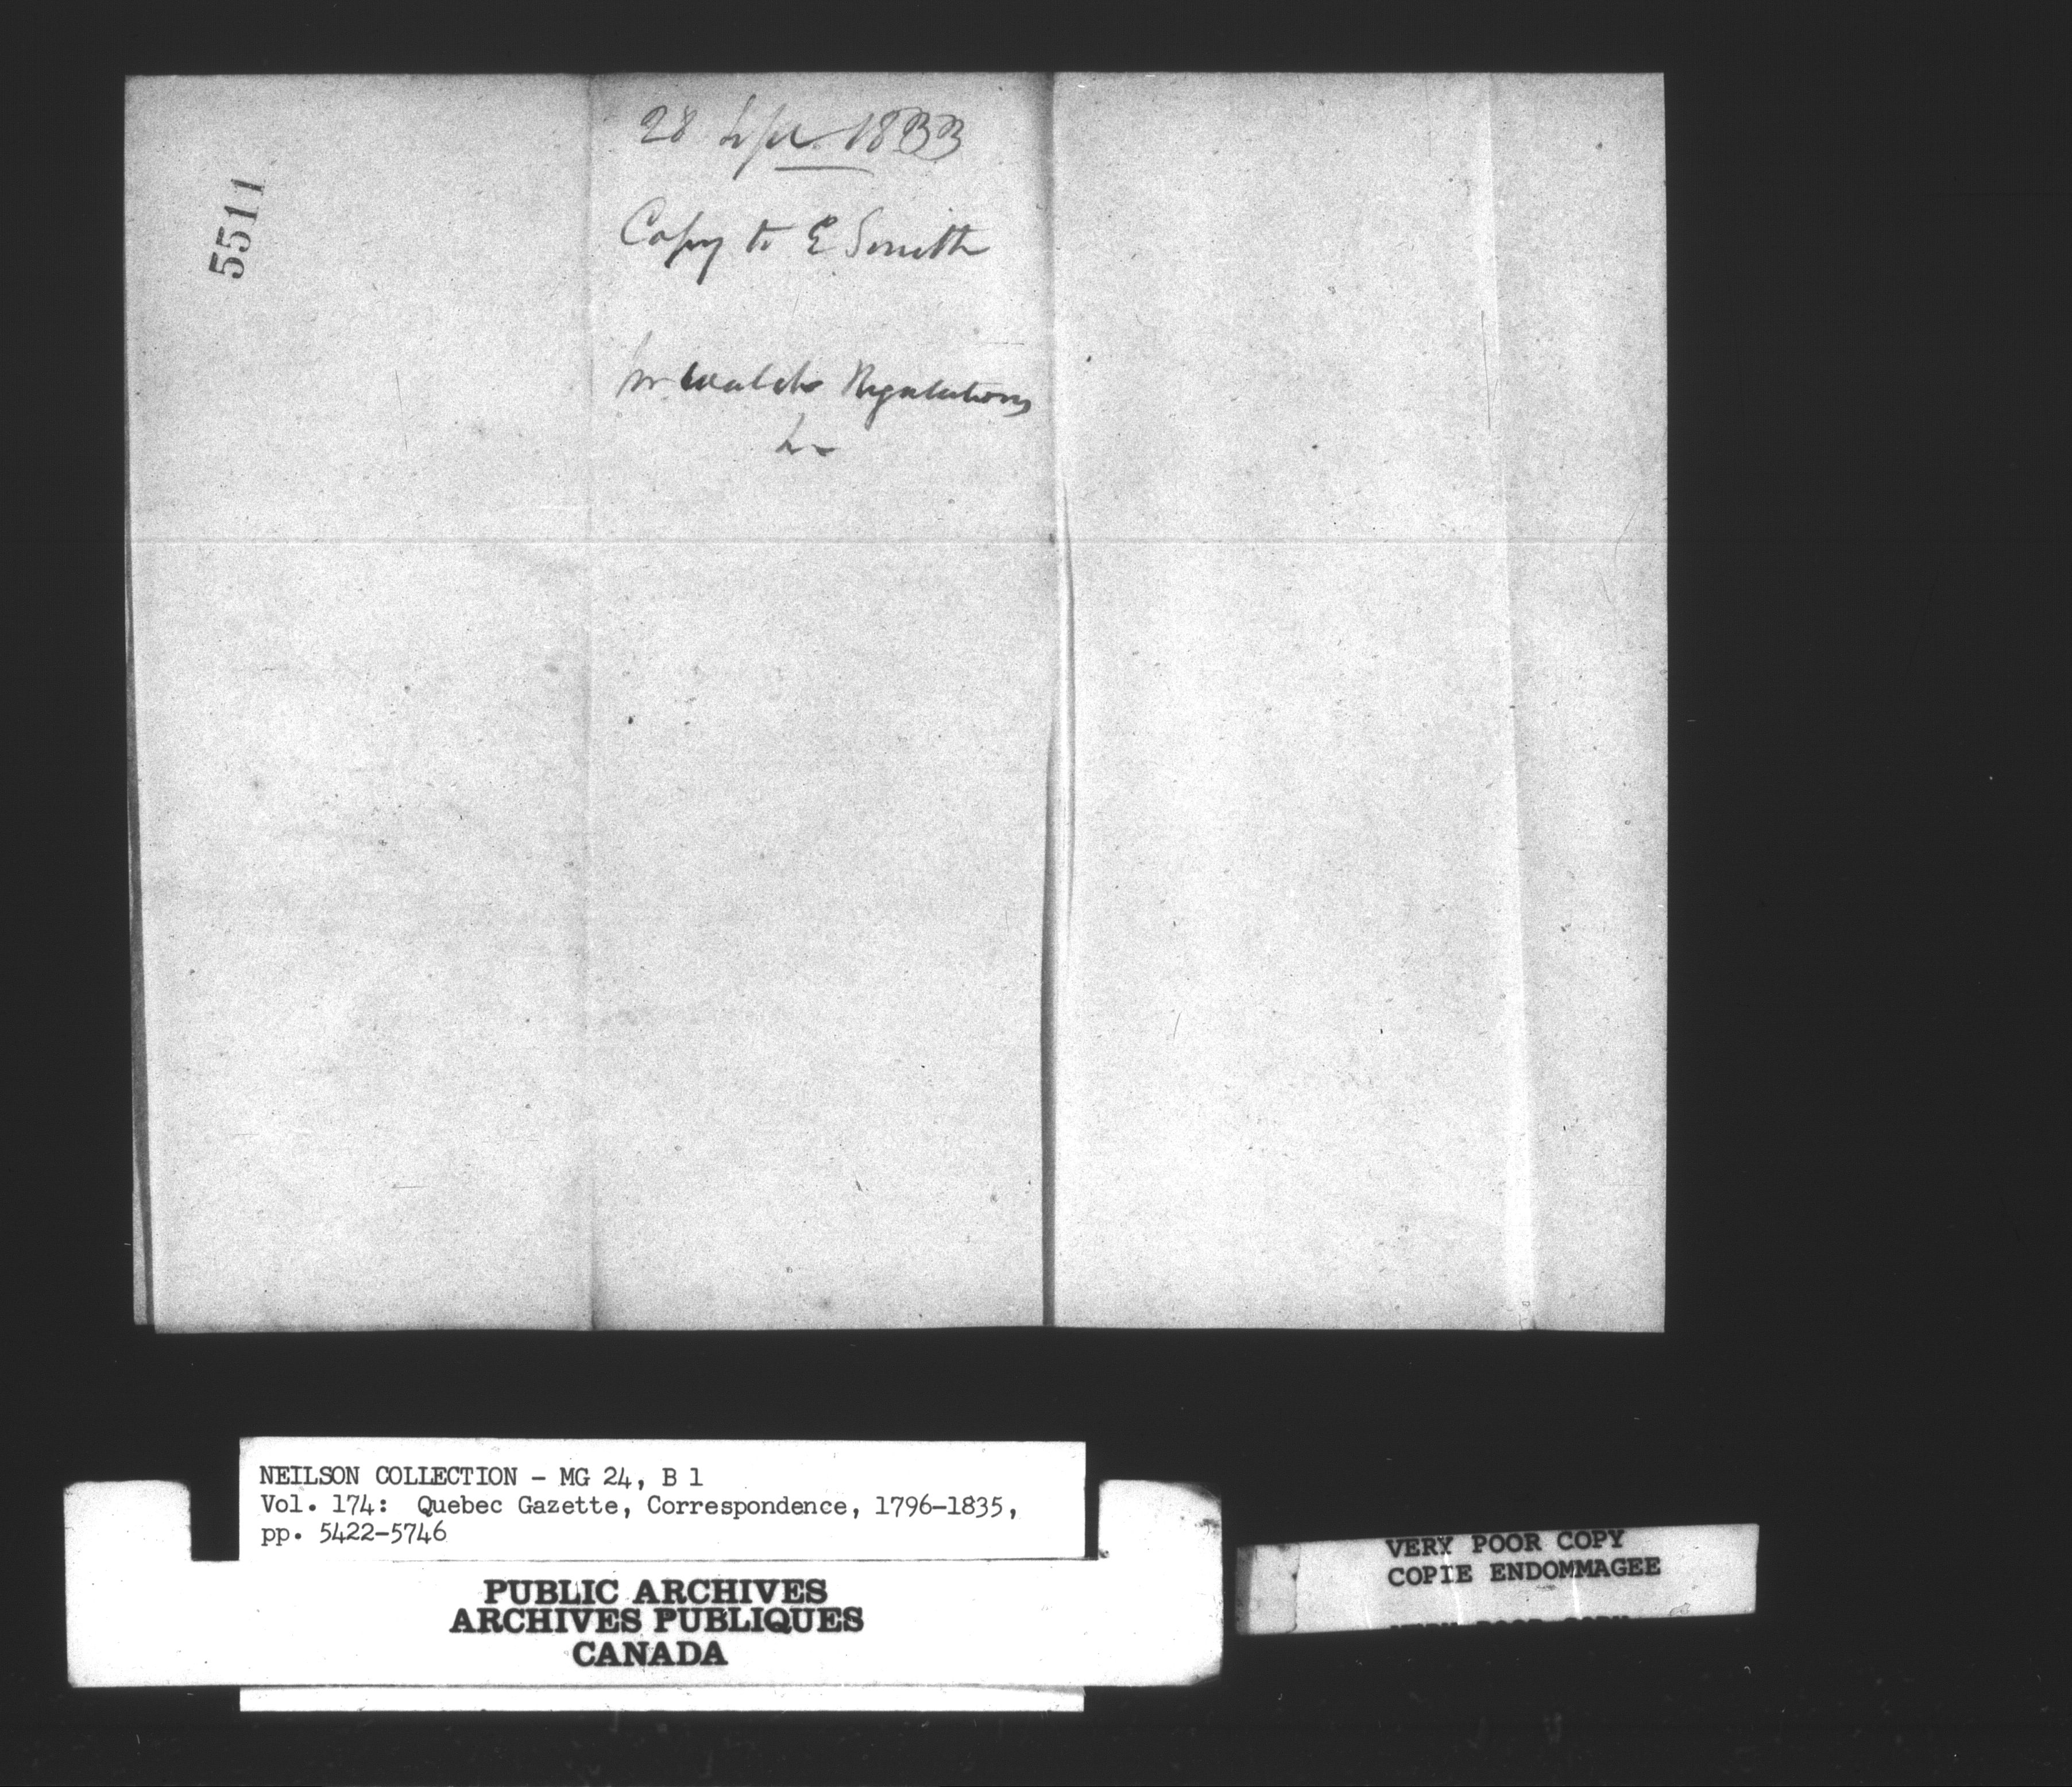 5511
28 Sept 1833
Copy to E Smith
Regulations
NEILSON COLLECTION - MG 24, B 1
Vol. 174: Quebec Gazette, Correspondence, 1796-1835,
pp. 5422-5746
PUBLIC ARCHIVES
ARCHIVES PUBLIQUES
CANADA
VERY POOR COPY
COPIE ENDOMMAGEE
VERY POOR COPY